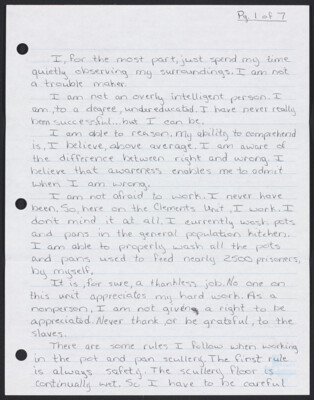 Pg. 1 of 7
I, for the most part, just spend my time
quietly observing my surroundings. I am not
a trouble maker.
I am not an overly intelligent person. I
am, to a degree, undereducated. I have never really
been successful... but I can be.
I am able to reason. My ability to comprehend
is, I believe, above average. I am aware of
the difference between right and wrong. I
believe that awareness enables me to admit
when I am wrong.
I am not afraid to work. I never have
been. So, here on the Clements Unit, I work. I
don't mind it at all. I currently wash pots
and pans in the general population kitchen.
I am able to properly wash all the pots
and pans used to feed nearly 2500 prisoners,
by myself.
It is, for sure, a thankless job. No one on
this unit appreciates my hard work. As a
nonperson, I am not given a right to be
appreciated. Never thank, or be grateful, to the
slaves.
There are some rules I follow when working
in the pot and pan scullery. The first rule
is always safety. The scullery floor is
continually wet. So I have to be careful